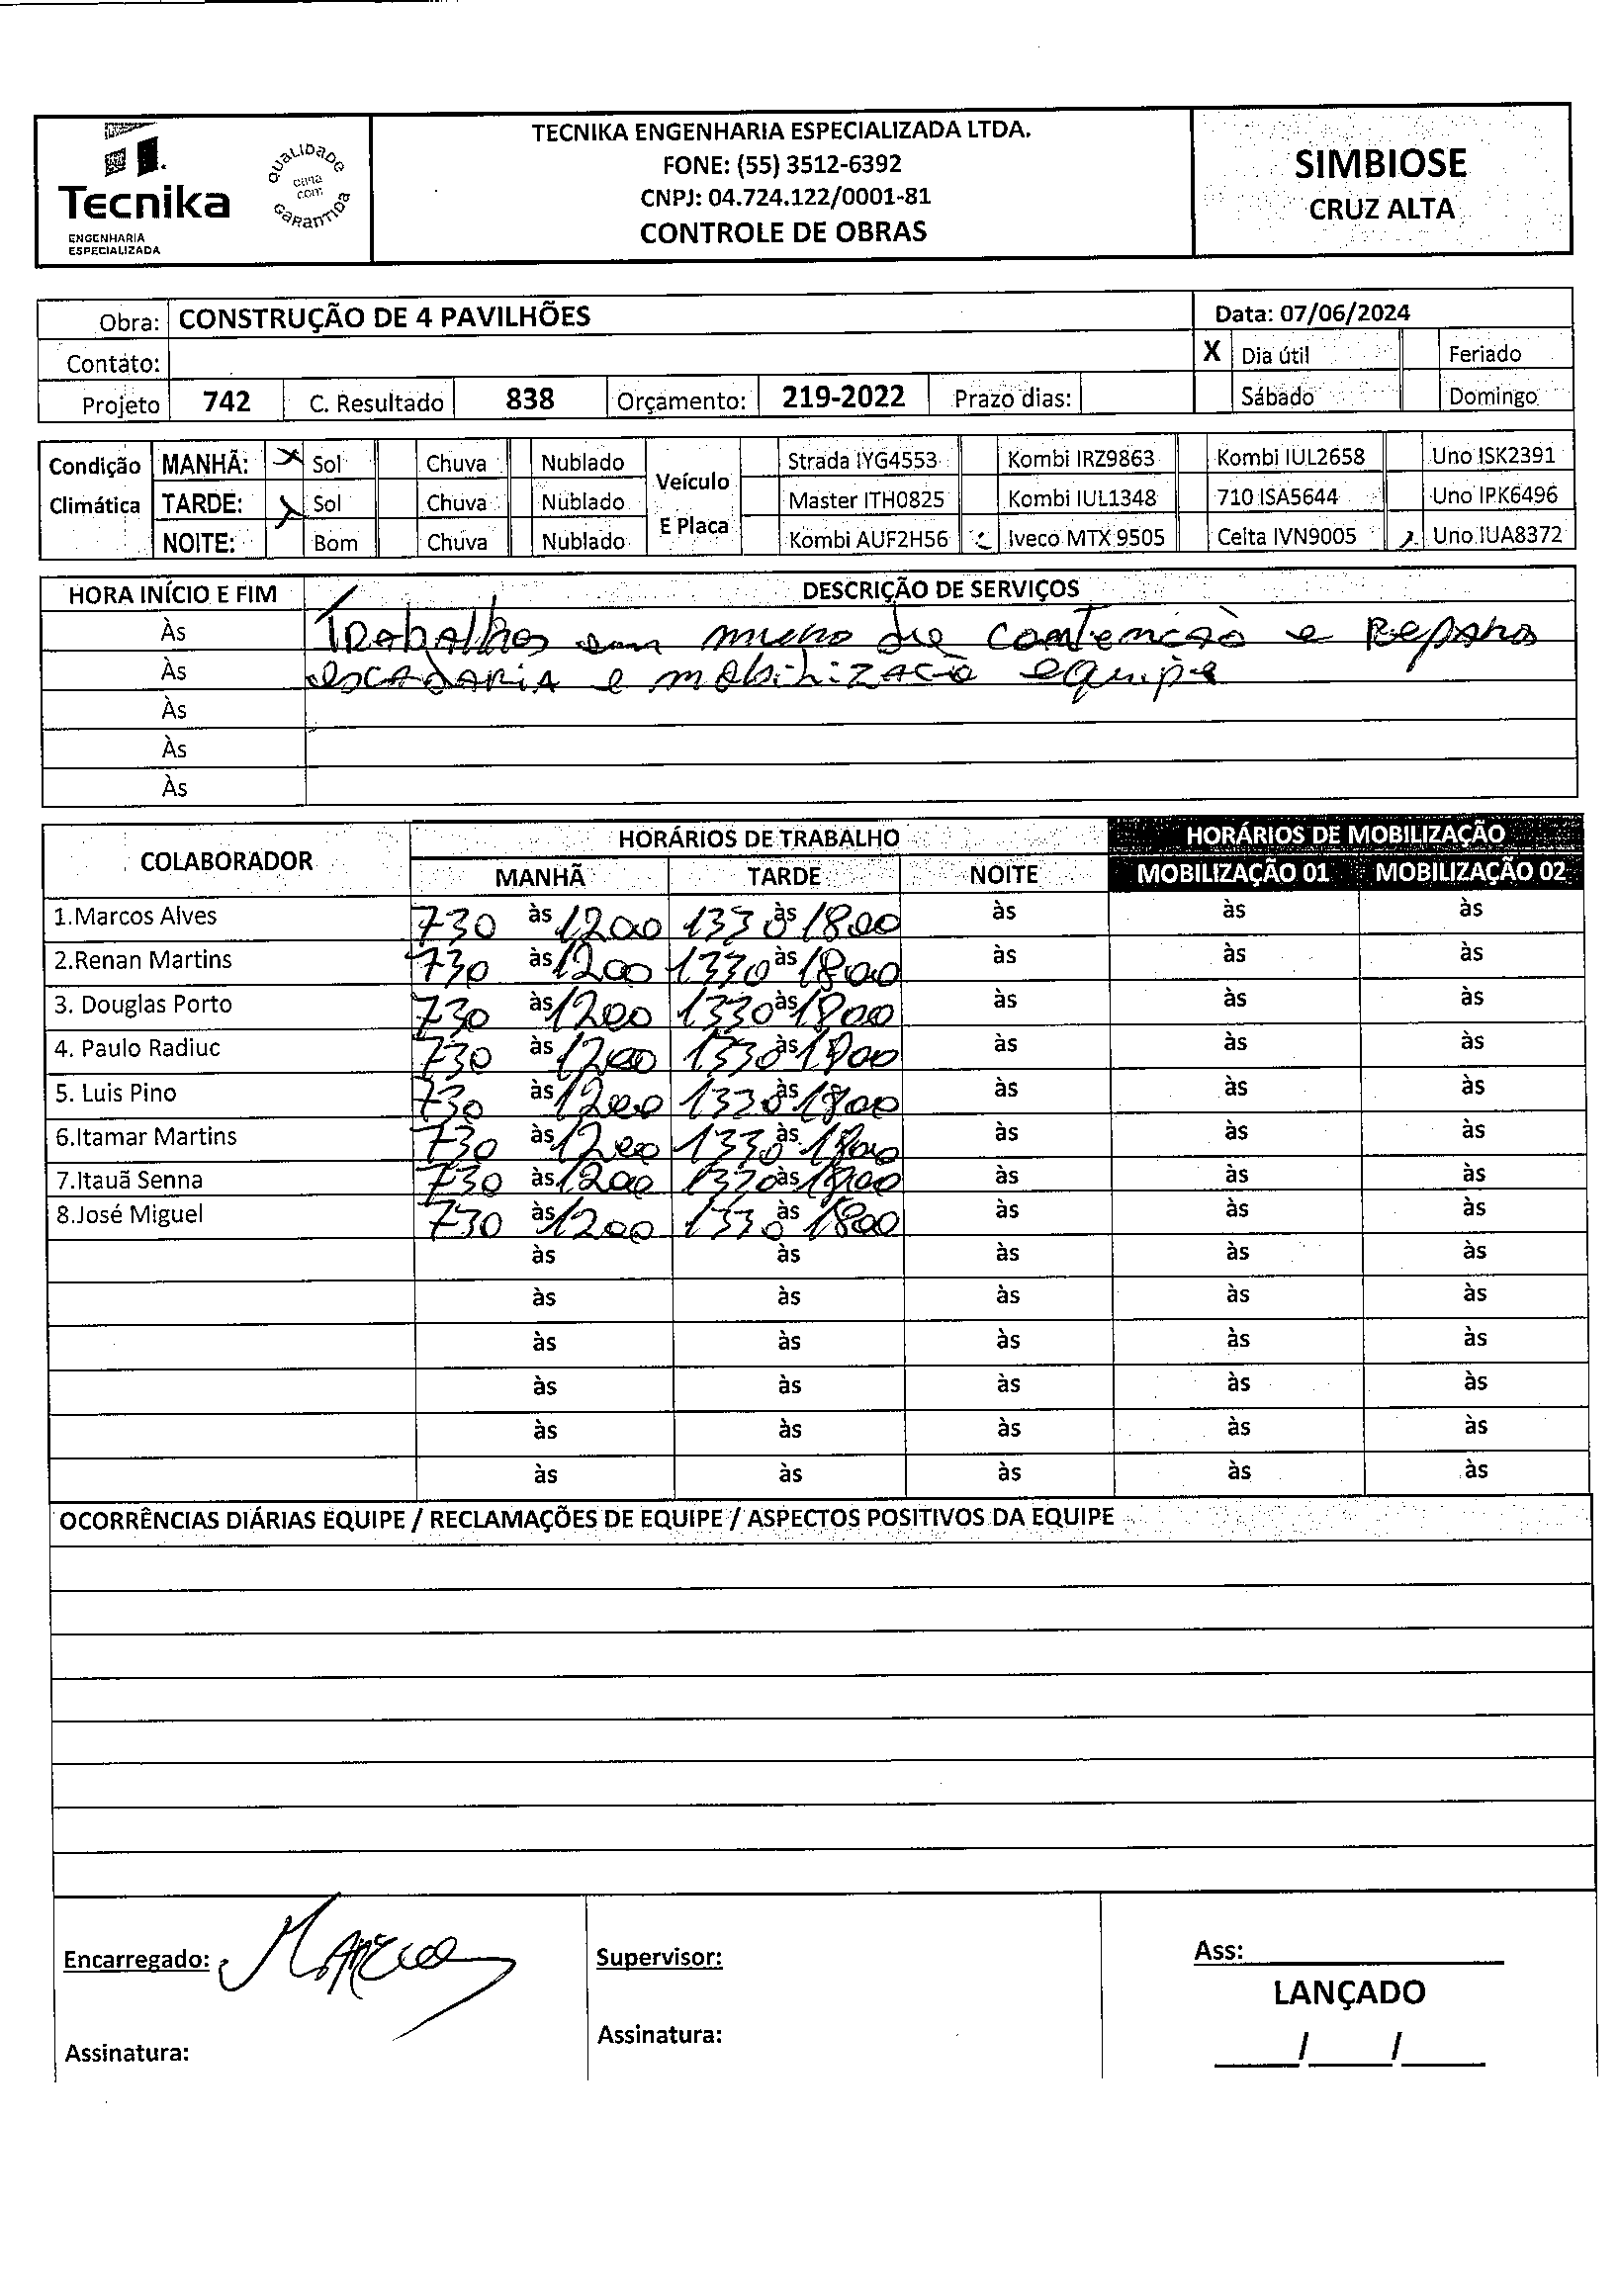 Tecnika
ENGENHARIA
ESPECIALIZADA
QUALIDADE
COM
GARANTIDA
TECNIKA ENGENHARIA ESPECIALIZADA LTDA.
FONE: (55) 3512-6392
CNPJ: 04.724.122/0001-81
CONTROLE DE OBRAS
SIMBIOSE
CRUZ ALTA
Obra: CONSTRUÇÃO DE 4 PAVILHÕES Data: 07/06/2024
Contato: X Dia útil Feriado
Projeto 742 C. Resultado 838 Orçamento: 219-2022 Prazo dias: Sábado Domingo
Condição Climática Veículo E Placa
MANHÃ: X Sol Chuva Nublado Strada IYG4553 Kombi IRZ9863 Kombi IUL2658 Uno ISK2391
TARDE: X Sol Chuva Nublado Master ITH0825 Kombi IUL1348 710 ISA5644 Uno IPK6496
NOITE: Bom Chuva Nublado Kombi AUF2H56 Iveco MTX 9505 Celta IVN9005 Uno IUA8372
HORA INÍCIO E FIM DESCRIÇÃO DE SERVIÇOS
Às Trabalhos em muro de contencaò e Reparo
Às escadaria e mobilizacaò equipe
Às
Às
Às
COLABORADOR HORÁRIOS DE TRABALHO HORÁRIOS DE MOBILIZAÇÃO
MANHÃ TARDE NOITE MOBILIZAÇÃO 01 MOBILIZAÇÃO 02
1.Marcos Alves 730 às 1200 1330 às 1800 às às às
2.Renan Martins 730 às 1200 1330 às 1800 às às às
3. Douglas Porto 730 às 1200 1330 às 1800 às às às
4. Paulo Radiuc 730 às 1200 1330 às 1800 às às às
5. Luis Pino 730 às 1200 1330 às 1800 às às às
6.Itamar Martins 730 às 1200 1330 às 1800 às às às
7.Itauã Senna 730 às 1200 1330 às 1800 às às às
8.José Miguel 730 às 1200 1330 às 1800 às às às
às às às às às
às às às às às
às às às às às
às às às às às
às às às às às
às às às às às
OCORRÊNCIAS DIÁRIAS EQUIPE / RECLAMAÇÕES DE EQUIPE / ASPECTOS POSITIVOS DA EQUIPE
Encarregado: Supervisor: Ass:
LANÇADO
Assinatura: Assinatura: / /